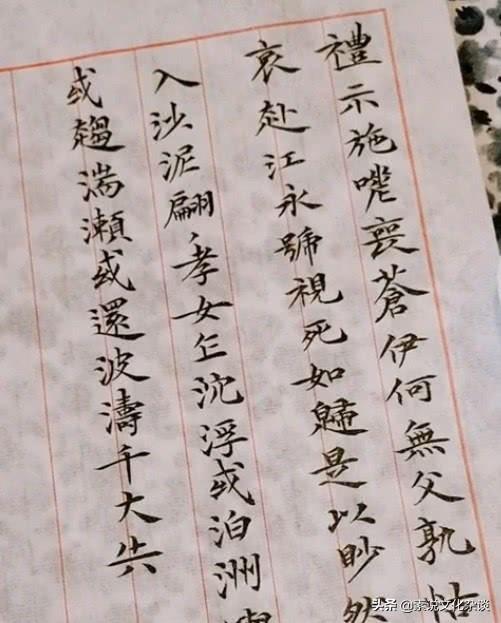 禮示施嗟喪蒼伊何無父孰怙
哀赴江永號視死如歸是以眇然
入沙泥翩〻孝女乍沈浮或泊洲嶼
或趨湍瀨或還波濤千大
头条 @素说文化杂谈